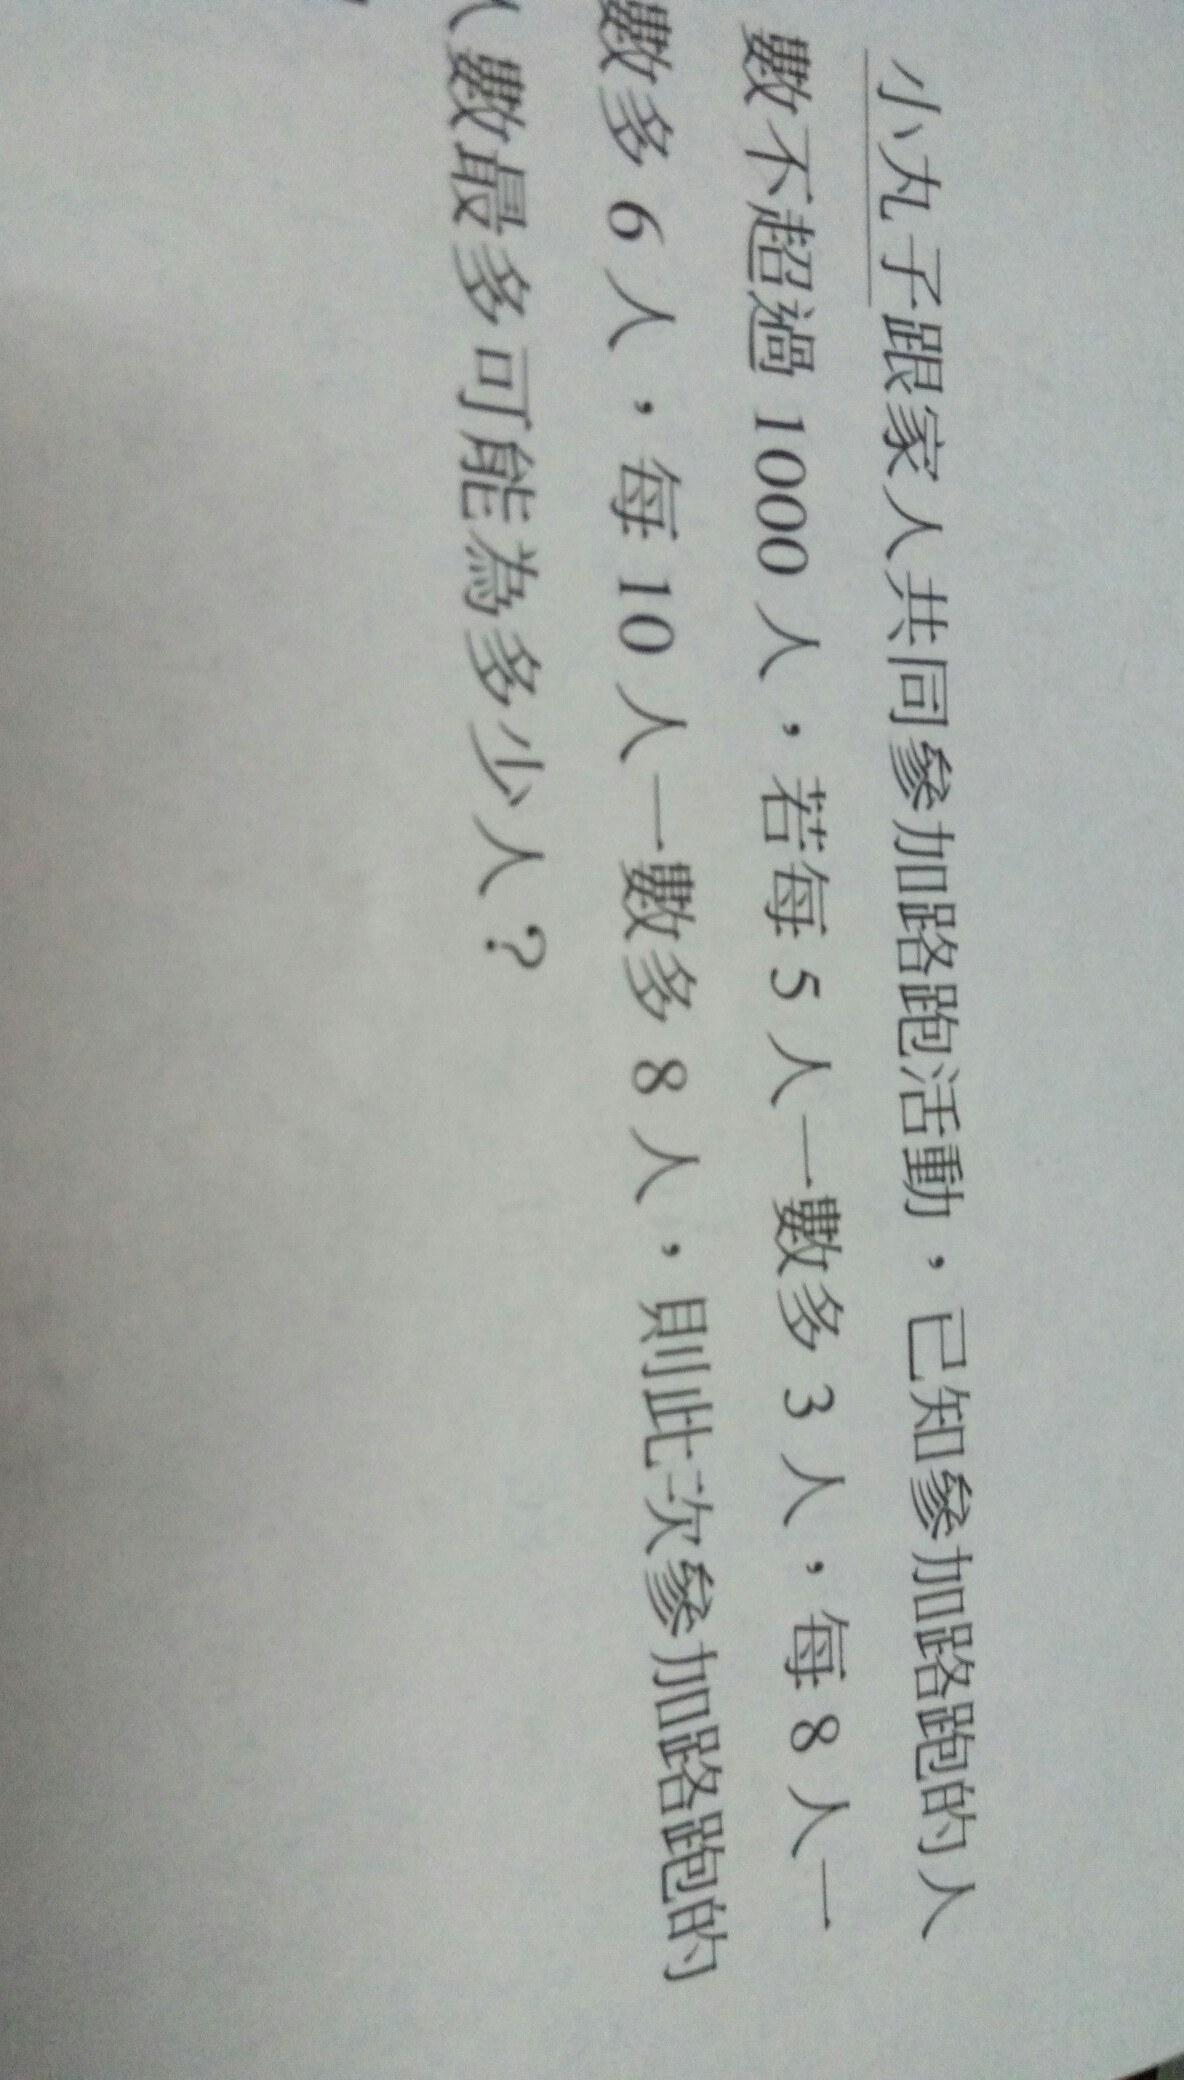 小丸子跟家人共同參加路跑活動，已知參加路跑的人
數不超過 1000 人，若每 5 人一數多 3 人，每 8 人一
數多 6 人，每 10 人一數多 8 人，則此次參加路跑的
人數最多可能為多少人？